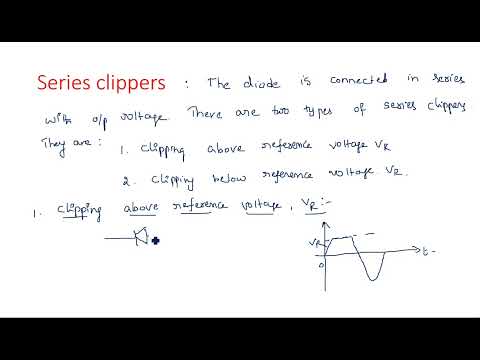 Series clippers : The diode is connected in series
with o/p voltage. There are two types of series clippers
They are : 1. clipping above reference voltage VR
2. clipping below reference voltage VR.
1. clipping above reference voltage, VR :-
VR
0
t